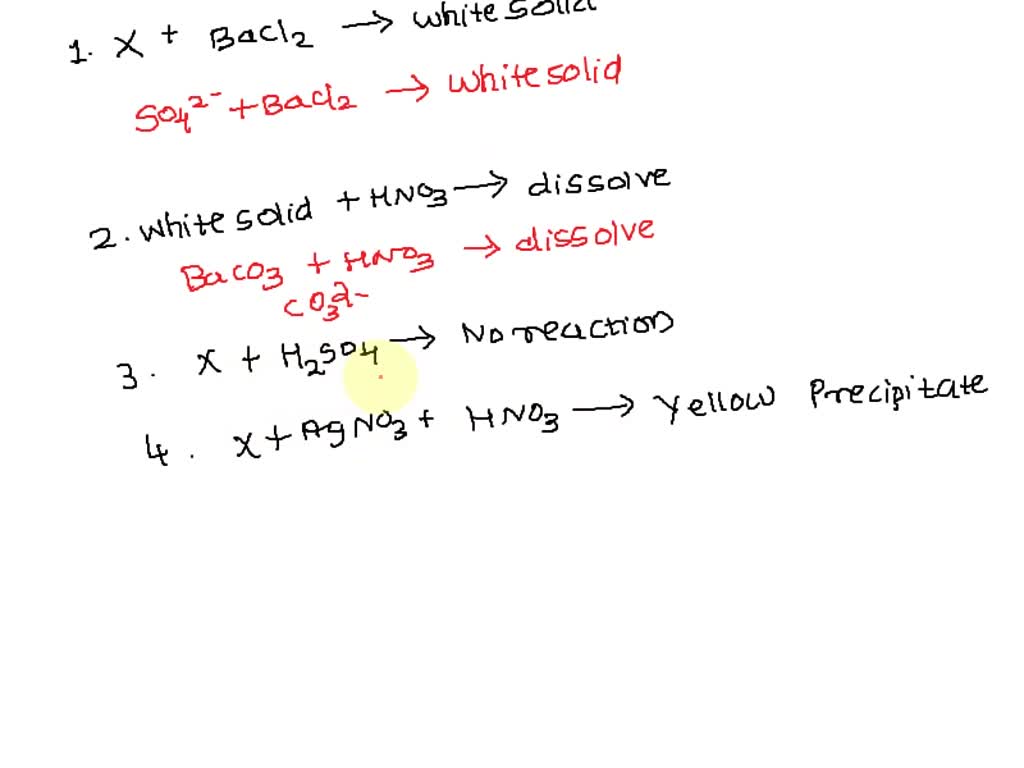 1. X + BaCl2 → white solid
SO4 2- + BaCl2 → white solid
2. white solid + HNO3 → dissolve
BaCO3 + HNO3 → dissolve
CO3 2-
3. X + H2SO4 → No reaction
4. X + AgNO3 + HNO3 → Yellow Precipitate